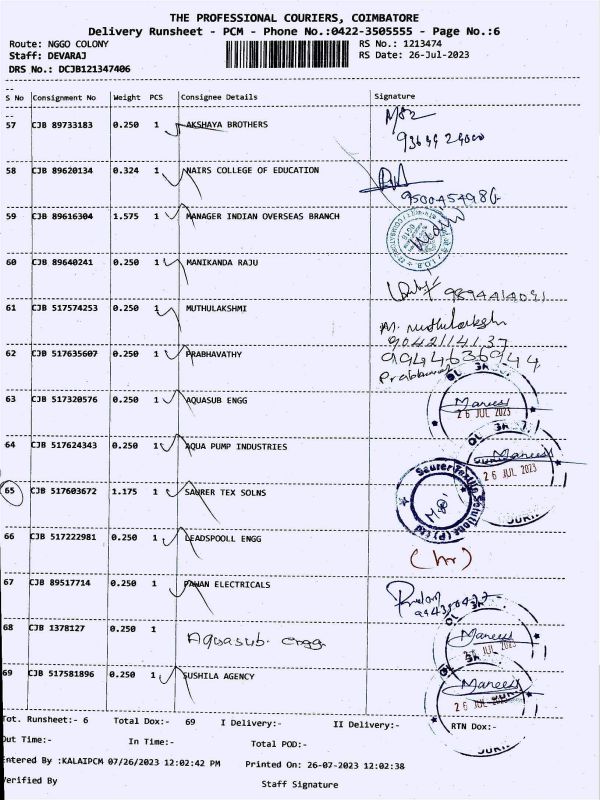 THE PROFESSIONAL COURIERS, COIMBATORE
Delivery Runsheet - PCM - Phone No.:0422-3505555 - Page No.:6
Route: NGGO COLONY RS No.: 1213474
Staff: DEVARAJ RS Date: 26-Jul-2023
DRS No.: DCJB121347406
S No Consignment No Weight PCS Consignee Details Signature
57 CJB 89733183 0.250 1 AKSHAYA BROTHERS
58 CJB 89620134 0.324 1 NAIRS COLLEGE OF EDUCATION
59 CJB 89616304 1.575 1 MANAGER INDIAN OVERSEAS BRANCH
60 CJB 89640241 0.250 1 MANIKANDA RAJU
61 CJB 517574253 0.250 1 MUTHULAKSHMI
M. muthulakshmi
9042114137
62 CJB 517635607 0.250 1 PRABHAVATHY
9944636944
63 CJB 517320576 0.250 1 AQUASUB ENGG
Manees
26 JUL 2023
64 CJB 517624343 0.250 1 AQUA PUMP INDUSTRIES
Manees
26 JUL 2023
65 CJB 517603672 1.175 1 SAURER TEX SOLNS
Saurer Textile Solutions (P) Ltd
66 CJB 517222981 0.250 1 LEADSPOOLL ENGG
(hr)
67 CJB 89517714 0.250 1 PAWAN ELECTRICALS
68 CJB 1378127 1 Aquasub. engg
Manees
26 JUL 2023
69 CJB 517581896 0.250 1 SUSHILA AGENCY
Manees
26 JUL 2023
Tot. Runsheet:- 6 Total Dox:- 69 I Delivery:- II Delivery:- RTN Dox:-
Out Time:- In Time:- Total POD:-
Entered By :KALAIPCM 07/26/2023 12:02:42 PM Printed On: 26-07-2023 12:02:38
Verified By Staff Signature